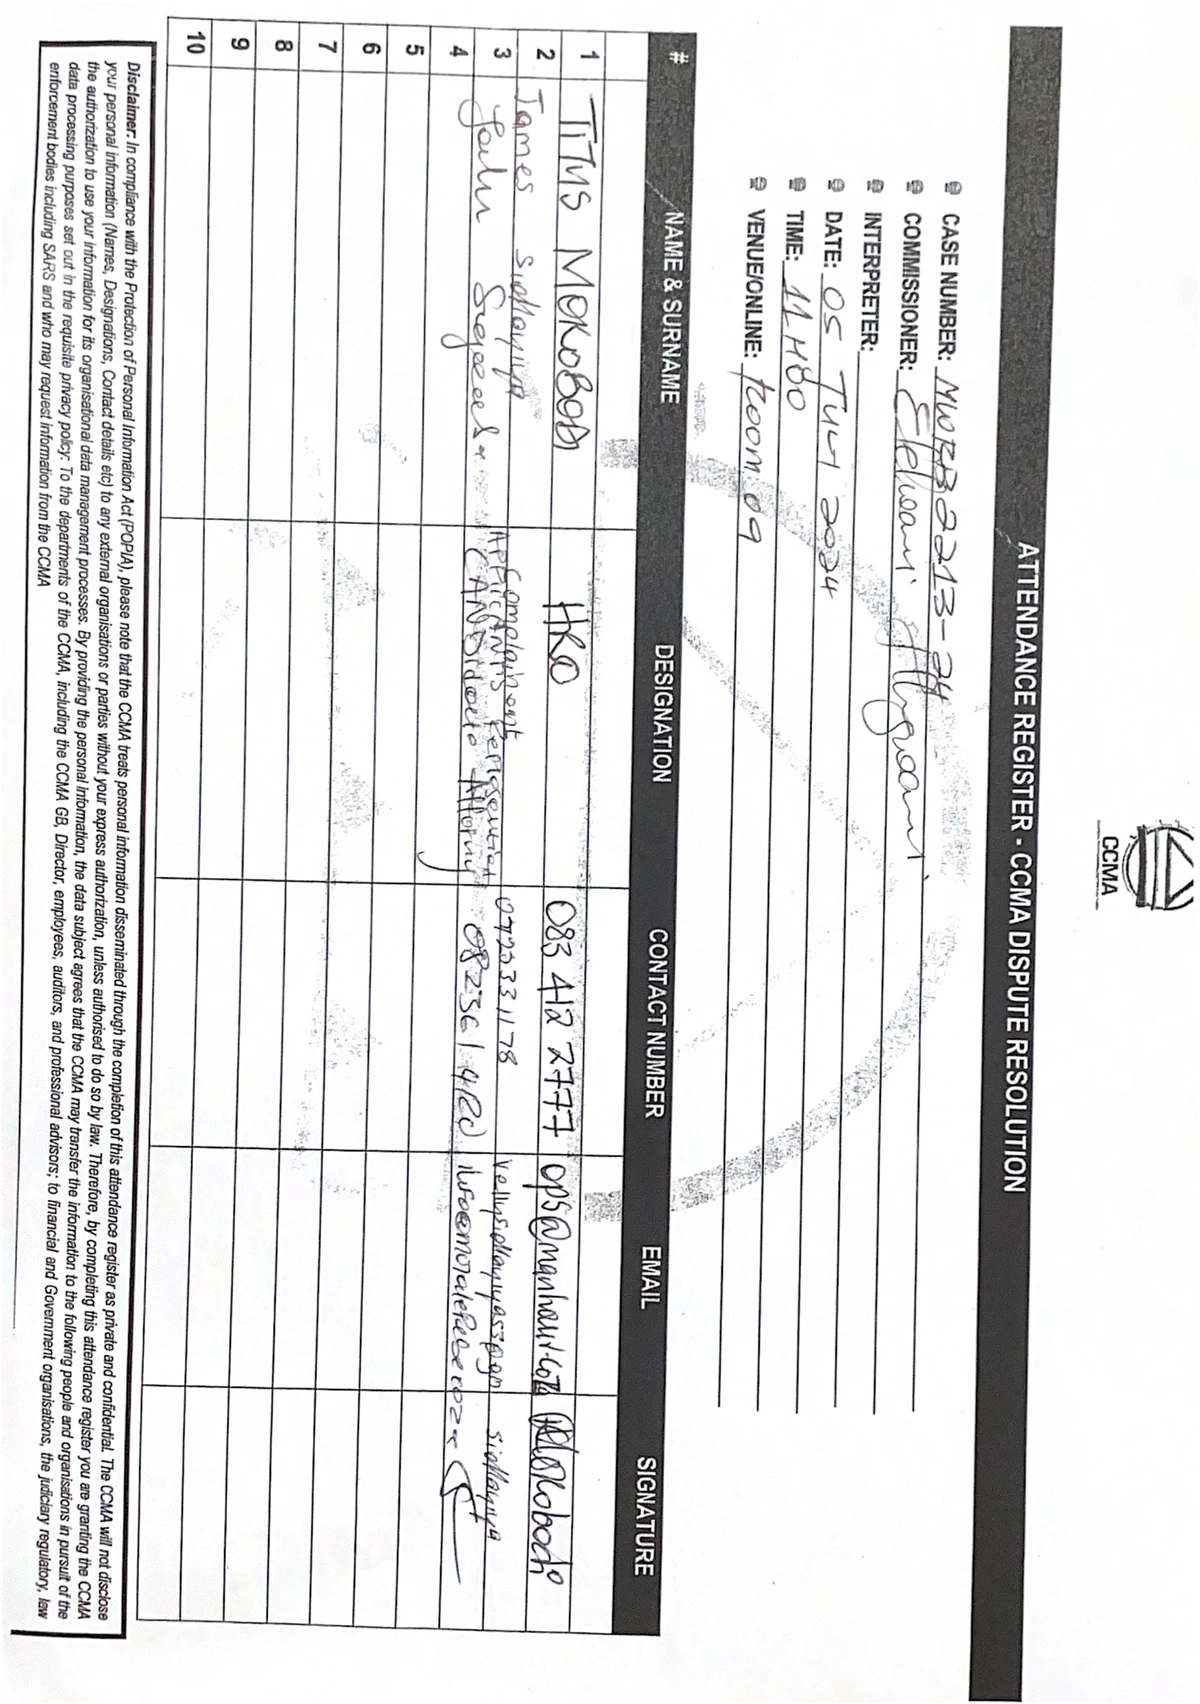 CCMA
ATTENDANCE REGISTER - CCMA DISPUTE RESOLUTION
CASE NUMBER: MWRB2213-24
COMMISSIONER:
INTERPRETER:
DATE: 05 July 2024
TIME: 11H00
VENUE/ONLINE: Room 09
# NAME & SURNAME DESIGNATION CONTACT NUMBER EMAIL SIGNATURE
1 TITUS MOKOBODI HRO 083 412 2777
2 James Complainant 0723331178
3 Applicants 
4 CANDidate Attorney
5
6
7
8
9
10
Disclaimer: In compliance with the Protection of Personal Information Act (POPIA), please note that the CCMA treats personal information disseminated through the completion of this attendance register as private and confidential. The CCMA will not disclose
your personal information (Names, Designations, Contact details etc) to any external organisations or parties without your express authorization, unless authorised to do so by law. Therefore, by completing this attendance register you are granting the CCMA
the authorization to use your information for its organisational data management processes. By providing the personal information, the data subject agrees that the CCMA may transfer the information to the following people and organisations in pursuit of the
data processing purposes set out in the requisite privacy policy: To the departments of the CCMA, including the CCMA GB, Director, employees, auditors, and professional advisors; to financial and Government organisations, the judiciary regulatory, law
enforcement bodies including SARS and who may request information from the CCMA